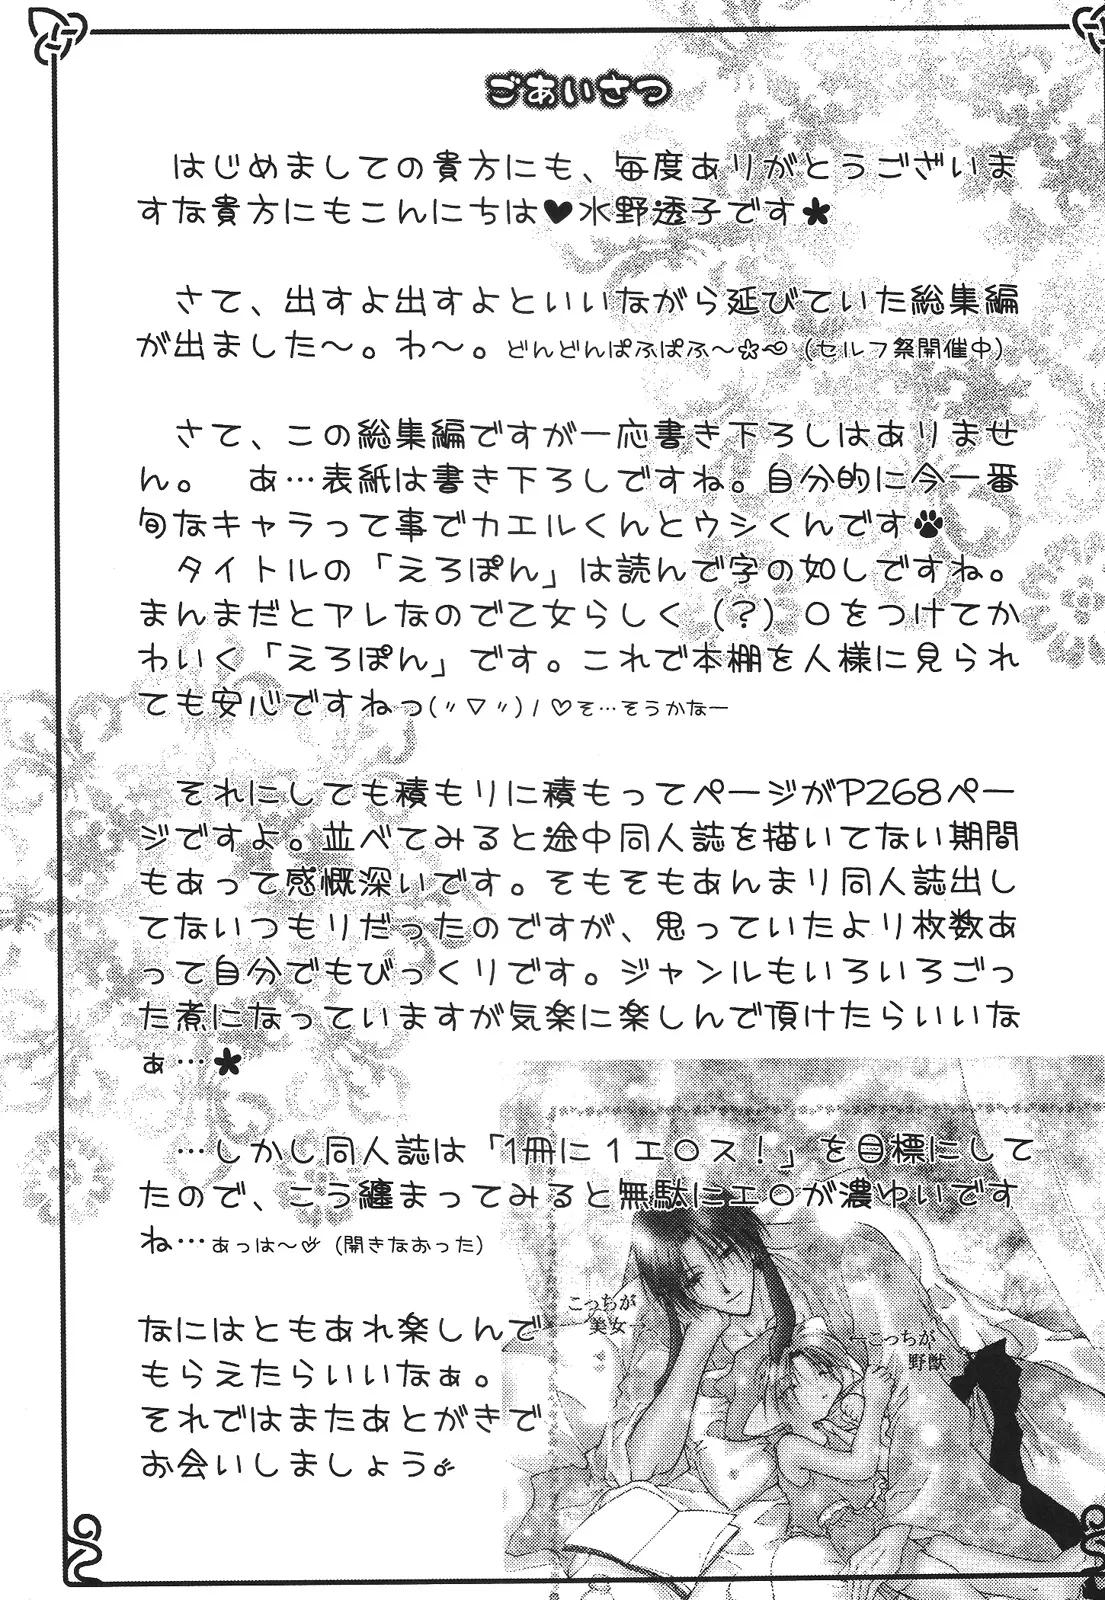 ごあいさつ
はじめましての貴方にも、毎度ありがとうございま
すな貴方にもこんにちは♥水野透子です
さて、出すよ出すよといいながら延びていた総集編
が出ました〜。わ〜。どんどんぱふぱふ〜 (セルフ祭開催中)
さて、この総集編ですが一応書き下ろしはありませ
ん。 あ…表紙は書き下ろしですね。自分的に今一番
旬なキャラって事でカエルくんとウシくんです
タイトルの「えろぽん」は読んで字の如しですね。
まんまだとアレなので乙女らしく(?)○をつけてか
わいく「えろぽん」です。これで本棚を人様に見られ
ても安心ですねっ(〃▽〃)/♡そ…そうかなー
それにしても積もりに積もってページがP268ペー
ジですよ。並べてみると途中同人誌を描いてない期間
もあって感慨深いです。そもそもあんまり同人誌出し
てないつもりだったのですが、思っていたより枚数あ
って自分でもびっくりです。ジャンルもいろいろごっ
た煮になっていますが気楽に楽しんで頂けたらいいな
ぁ…
…しかし同人誌は「1冊に1エ○ス!」を目標にして
たので、こう纏まってみると無駄にエ○が濃ゆいです
ね…あっは〜 (開きなおった)
なにはともあれ楽しんで
もらえたらいいなぁ。
それではまたあとがきで
お会いしましょう。
こっちが
美女→
←こっちが
野獣